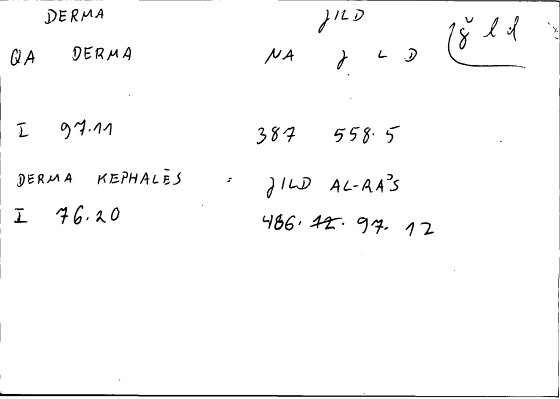 DERMA JILD
ǧ l d
QA DERMA NA J L D
I 97.11 387 558.5
DERMA KEPHALĒS = JILD AL-RA'S
I 76.20 486. 12. 97. 12